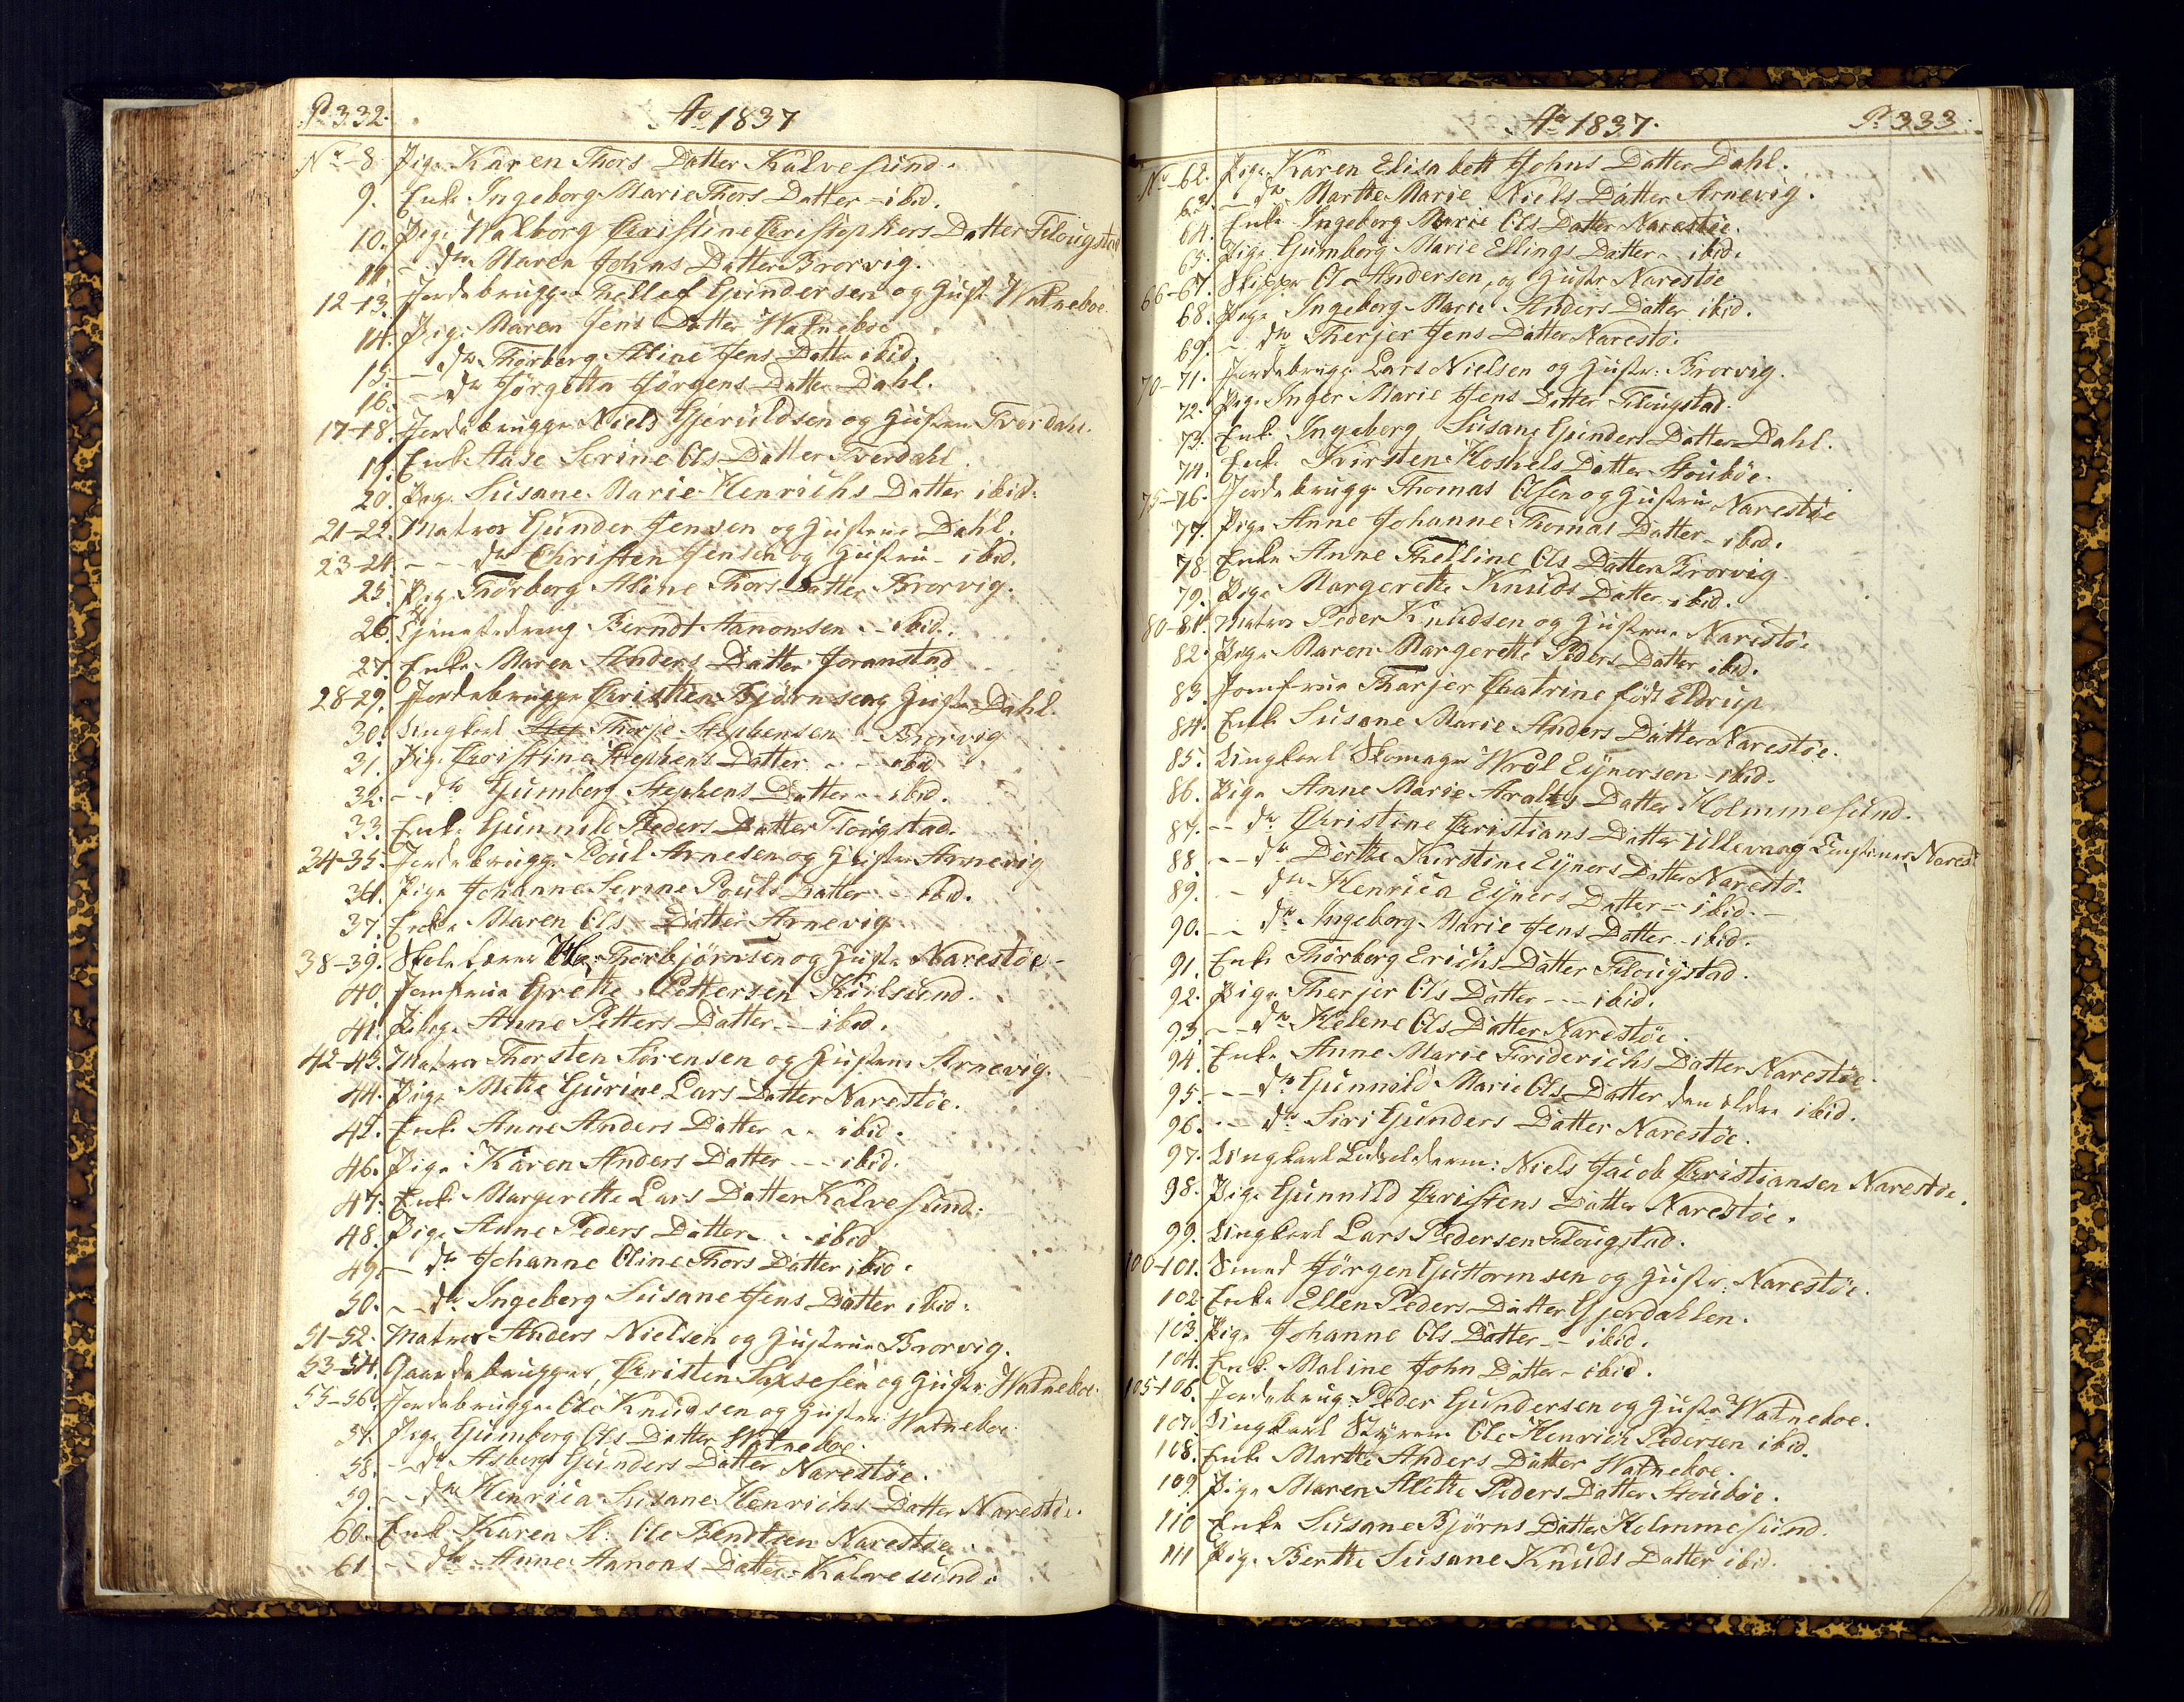 P. 332.
Ao 1837
No 8. Pige Karen Thors Datter Kalvesund.
9. Enke Ingeborg Marie Thors Datter - ibid.
10. Pige Walborg Christine Christophers Datter Flougstad
11. - do Maren Johns Datter Brorvig.
12-13. Jordebruger Thellef Gundersen og Hustr Watneboe.
14. Pige Maren Jens Datter Watneboe
15. - do Thorborg Aline Jens Datter ibid.
16. - do Jörgetta Jörgens Datter Dahl.
17-18. Jordebruger Niels Gjeruldsen og Hustrue Tverdahl.
19. Enke Aase Serine Ols Datter Tverdahl.
20. Pige Susane Marie Henrichs Datter ibid.
21-22. Matros Gunder Jensen og Hustrue Dahl.
23-24. - - do Christen Jensen og Hustrue - ibid.
25. Pige Thorborg Aline Thors Datter Brorvig.
26. Tjenestedreng Berndt Aanonsen - ibid.
27. Enke Maren Anders Datter Joranstad
28-29. Jordebruger Christen Björnsen og Hustr Dahl.
30. Ungkarl Thorje Stephensen - Brorvig
31. Pige Christine Stephens Datter - - ibid
32. - do Gumberg Stephens Datter - ibid.
33. Enke Gunnild Peders Datter Flougstad.
34-35. Jordebruger Poul Arnesen og Hustr Arnevig
36. Pige Johanne Serine Pouls Datter - ibid.
37. Enke Maren Ols Datter Arnevig
38-39. Skolelærer Ole Thorbjörnsen og Hustr Narestöe -
40. Jomfrue Grethe Pettersen Kirlsund.
41. Pige Anne Petters Datter - ibid.
42-43. Matros Thorsten Sörensen og Hustrue Arnevig.
44. Pige Mette Gurine Lars Datter Narestöe.
45. Enke Anne Anders Datter - - ibid.
46. Pige Karen Anders Datter - - ibid.
47. Enke Margerethe Lars Datter Kalvesund.
48. Pige Anne Peders Datter - - ibid
49. - do Johanne Oline Thors Datter ibid.
50. - - do Ingeberg Susane Jens Datter ibid.
51-52. Matros Anders Nielsen og Hustrue Brorvig.
53-54. Gaardebruger, Christen Saxesen og Hustr Watneboe.
55-56. Jordebruger Ole Knudsen og Hustru Watneboe
57. Pige Gumborg Ols Datter Watneboe.
58. - do Asberg Gunders Datter Narestöe.
59. - - do Henrica Susane Henrichs Datter Narestöe.
60. Enke Karen Sl: Ole Bendtsen Narestöe
61 - do Anne Aanons Datter Kalvesund.
Ao 1837.
P. 333.
No 62. Pige Karen Elisabett Johns Datter Dahl.
63. - do Marthe Marie Niels Datter Arnevig.
64. Enke Ingeborg Marie Ols Datter Narestöe.
65. Pige Gumborg Marie Ellings Datter - ibid.
66-67. Skipper Ole Andersen, og Hustr Narestöe
68. Pige Ingeborg Marie Anders Datter ibid.
69. - do Therjer Jens Datter Narestö.
70-71. Jordebruger Lars Nielsen og Hustr: Brorvig.
72. Pige Inger Marie Jens Datter Flougstad.
73. Enke Ingeborg Susane Gunders Datter Dahl.
74. Enke Kirsten Koshels Datter Stouböe.
75-76. Jordebruger Thomas Olsen og Hustrue Narestöe
77. Pige Anne Johanne Thomas Datter - ibid.
78. Enke Anne Thelline Ols Datter Brorvig
79. Pige Margerethe Knuds Datter - ibid.
80-81. Matros Peder Knudsen og Hustrue Narestöe
82. Pige Maren Margerethe Peders Datter ibid.
83. Jomfrue Tharjer Chatrine födt Eldrup
84. Enke Susane Marie Anders Datter Narestöe.
85. Ungkarl Skomager Wrål Eynersen - ibid.
86. Pige Anne Marie Aralts Datter Holmmesund.
87. - - do Christine Christians Datter Ullevaag Narest
88. - - do Dorthe Kirstine Eyners Datter Narestö.
89. - do Henrica Eyners Datter - ibid. -
90. - - do Ingeborg Marie Jens Datter - ibid.
91. Enke Thorborg Erichs Datter Flougstad.
92. Pige Therjer Ols Datter - - ibid.
93. - - do Helene Ols Datter Narestöe.
94. Enke Anne Marie Friderichs Datter Narestöe.
95. - - do Gunnild Marie Ols Datter den ældre ibid.
96. - - do Siri Gunders Datter Narestöe.
97. Ungkarl Niels Jacob Christiansen Narestöe.
98. Pige Gunnild Christens Datter Narestöe.
99. Ungkarl Lars Pedersen Flougstad.
100-101. Smed Jörgen Guttormsen og Hustr: Narestöe.
102 Enke Ellen Peders Datter Gjerdahlen.
103. Pige Johanne Ols Datter - - ibid.
104. Enke Maline John Datter - ibid.
105-106. Jordebrug: Peder Gundersen og Hustr Watneboe.
107. Ungkarl Styrm: Ole Henrich Pedersen ibid.
108. Enke Marthe Anders Datter Watneboe.
109. Pige Maren Alethe Peders Datter Stouböe.
110 Enke Susane Björns Datter Holmmesund.
111 Pige Berthe Susane Knuds Datter ibid.